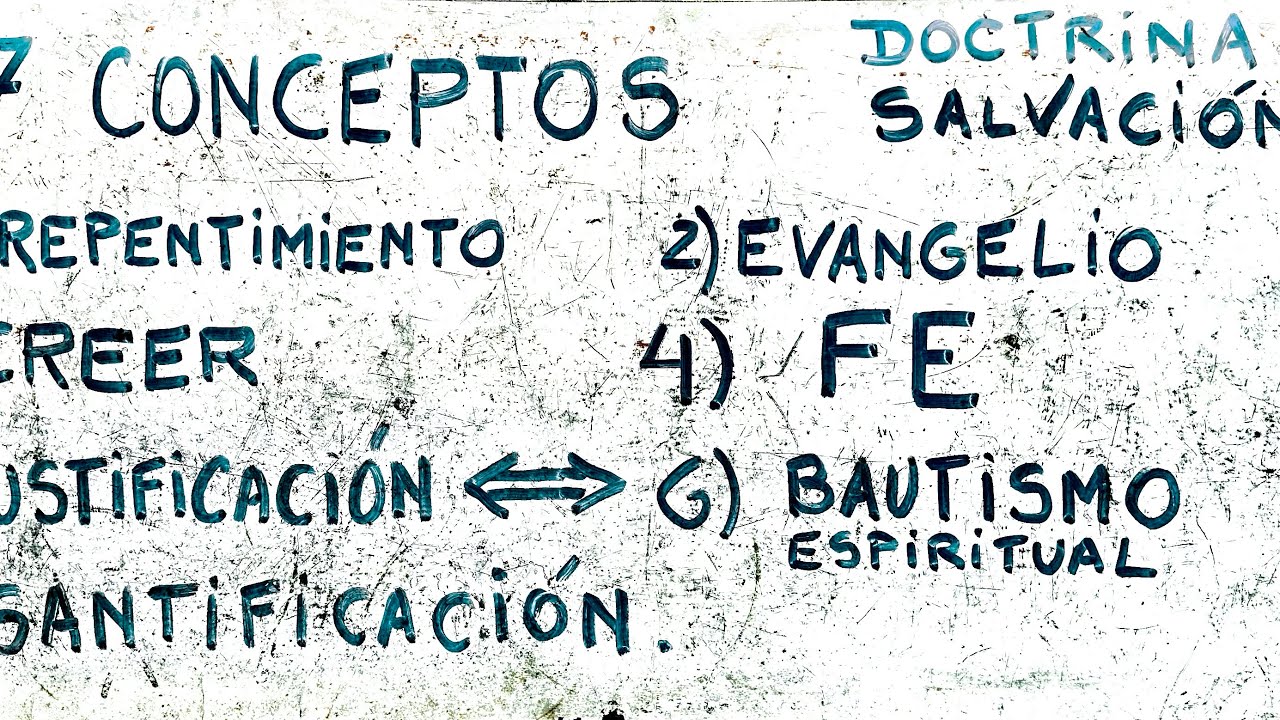 7 CONCEPTOS
DOCTRINA
SALVACIÓN
REPENTIMIENTO
2) EVANGELIO
CREER
4) FE
USTIFICACIÓN ⟺ 6) BAUTISMO
ESPIRITUAL
SANTIFICACIÓN.